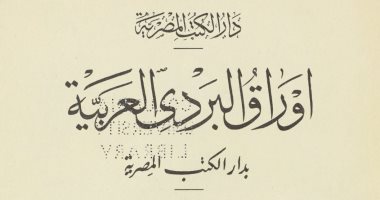 دار الكتب المصرية
أوراق البردي العربية
LIBRARY
بدار الكتب المصرية